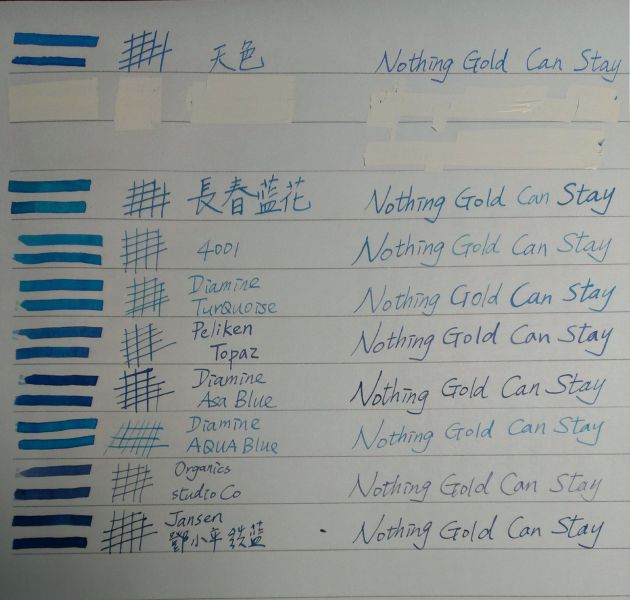 天色 Nothing Gold Can Stay
長春蓝花 Nothing Gold Can Stay
4001 Nothing Gold Can Stay
Diamine
Turquoise Nothing Gold Can Stay
Peliken
Topaz Nothing Gold Can Stay
Diamine
Asa Blue Nothing Gold Can Stay
Diamine
AQUA Blue Nothing Gold Can Stay
Organics
studio Co Nothing Gold Can Stay
Jansen
鄧小平 蓝 Nothing Gold Can Stay